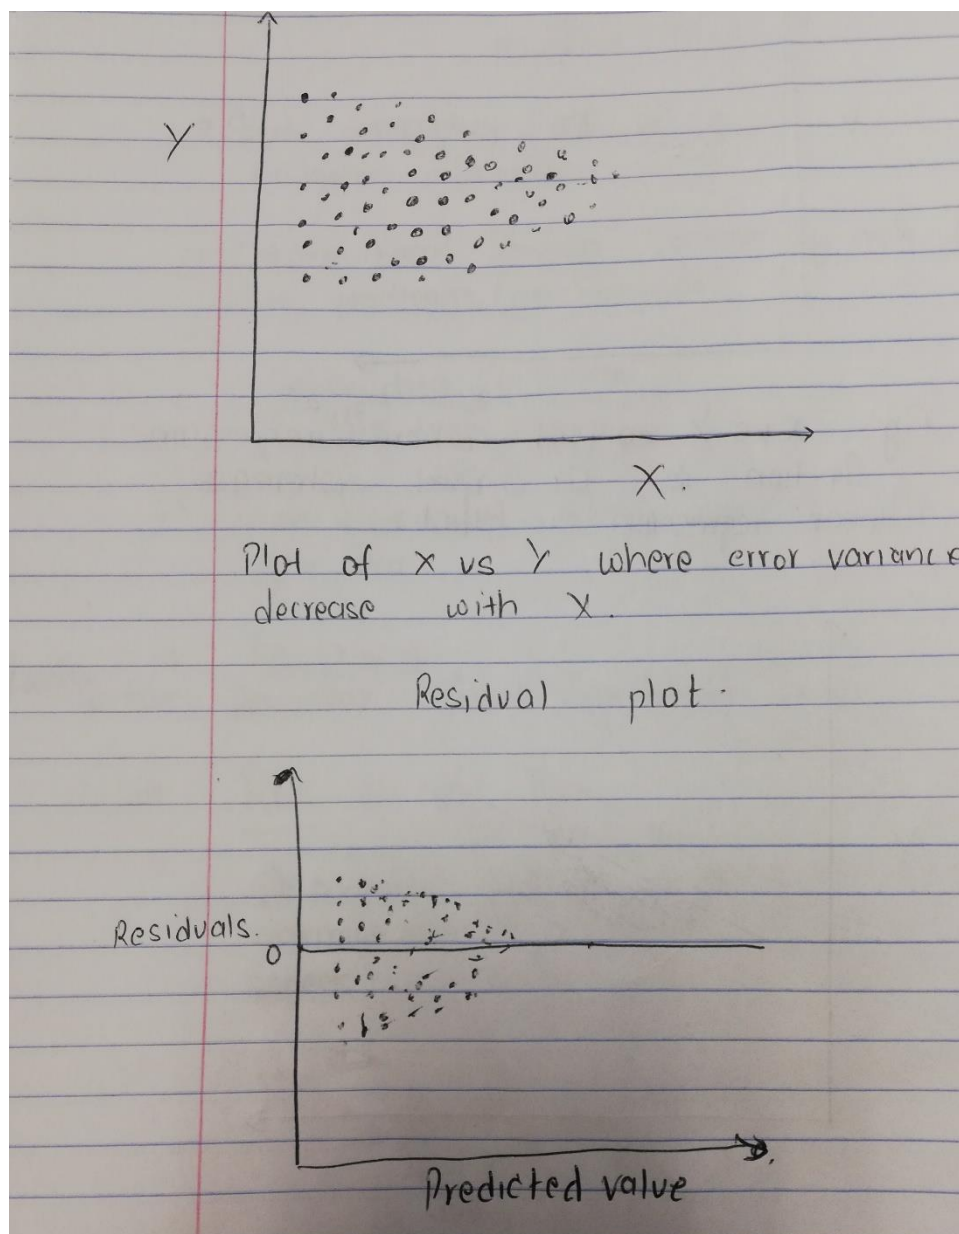 Y
X.
Plot of X vs Y where error variance
decrease with X.
Residual plot.
Residuals.
0
Predicted value